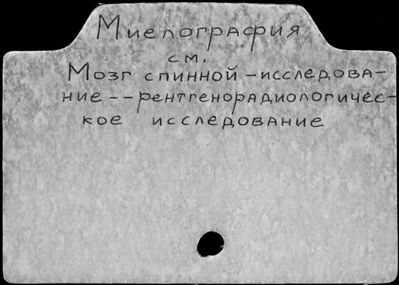 Миелография
см.
Мозг спинной – исследова-
ние -- рентгенорадиологичес-
кое исследование